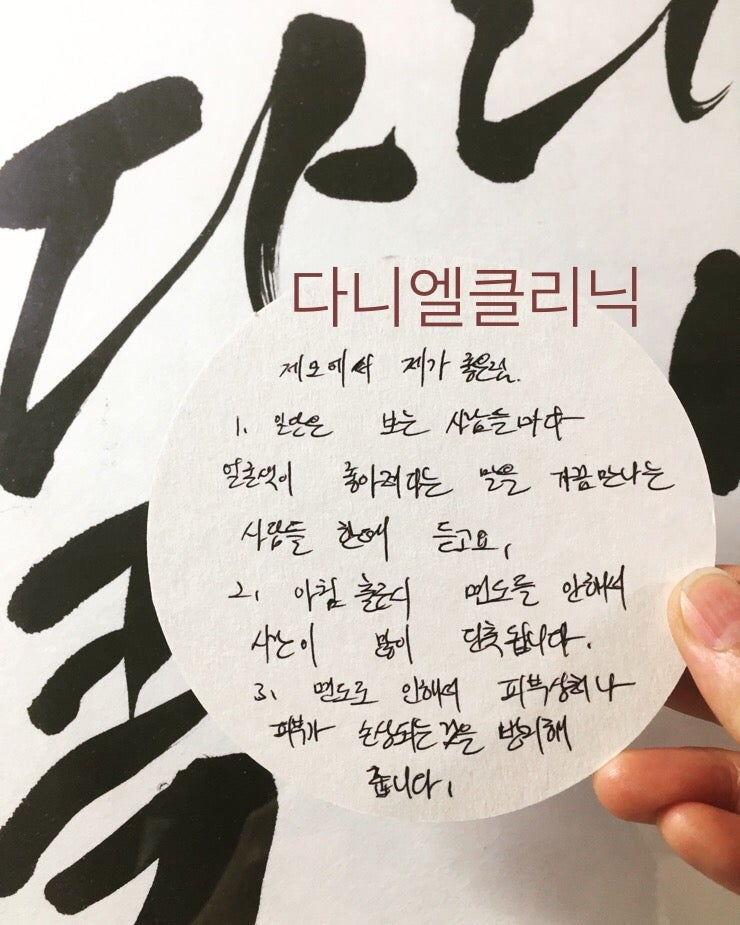 다니엘클리닉
제모에서 제가 좋은점.
1. 일단은 보는 사람들마다
얼굴색이 좋아졌다는 말을 가끔만나는
사람들 한테 듣고요,
2, 아침 출근시 면도를 안해서
시간이 많이 단축됩니다.
3, 면도로 인해서 피부상처나
피부가 손상되는것을 방지해
줍니다,